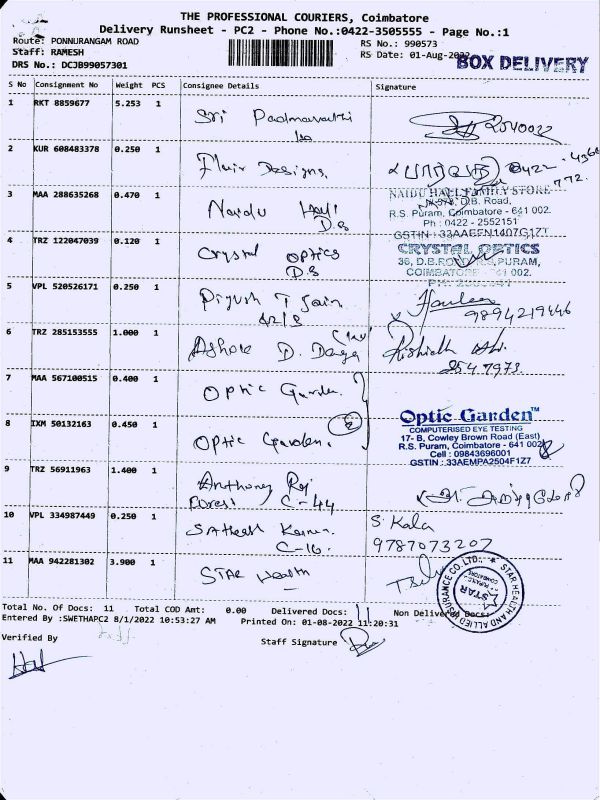 THE PROFESSIONAL COURIERS, Coimbatore
Delivery Runsheet - PC2 - Phone No.:0422-3505555 - Page No.:1
Route: PONNURANGAM ROAD
RS No.: 990573
Staff: RAMESH
RS Date: 01-Aug-2022
BOX DELIVERY
DRS No.: DCJB99057301
S No Consignment No Weight PCS Consignee Details Signature
1 RKT 8859677 5.253 1 Sri Padmavathi
2 KUR 608483378 0.250 1 Flair Designs, 0422-
772.
3 MAA 288635268 0.470 1 Naidu Hall
D.B
NAIDU HALL FAMILY STORE
D.B. Road,
R.S. Puram, Coimbatore - 641 002.
Ph : 0422 - 2552151
GSTIN : 33AAEFN1407G1ZT
4 TRZ 122047039 0.120 1 Crystal Optics
D.B
CRYSTAL OPTICS
36, D.B.ROAD, R.S.PURAM,
COIMBATORE - 641 002.
5 VPL 520526171 0.250 1 Piyush T Jain
9894219446
6 TRZ 285153555 1.000 1 Ashok D. Daga
7 MAA 567100515 0.400 1 Optic Garden.
8 IXM 50132163 0.450 1 Optic Garden. 2
Optic Garden™
COMPUTERISED EYE TESTING
17- B, Cowley Brown Road (East)
R.S. Puram, Coimbatore - 641 002
Cell : 09843696001
GSTIN : 33AEMPA2504F1Z7
9 TRZ 56911963 1.400 1 Anthony Raj
C-44
10 VPL 334987449 0.250 1 Satheesh Kumar
C-16.
S. Kala
9787073207
11 MAA 942281302 3.900 1 STAR Health
STAR HEALTH AND ALLIED INSURANCE CO.LTD.
STAR
Total No. Of Docs: 11 Total COD Amt: 0.00 Delivered Docs: 11 Non Delivered Docs:
Entered By :SWETHAPC2 8/1/2022 10:53:27 AM Printed On: 01-08-2022 11:20:31
Verified By
Staff Signature